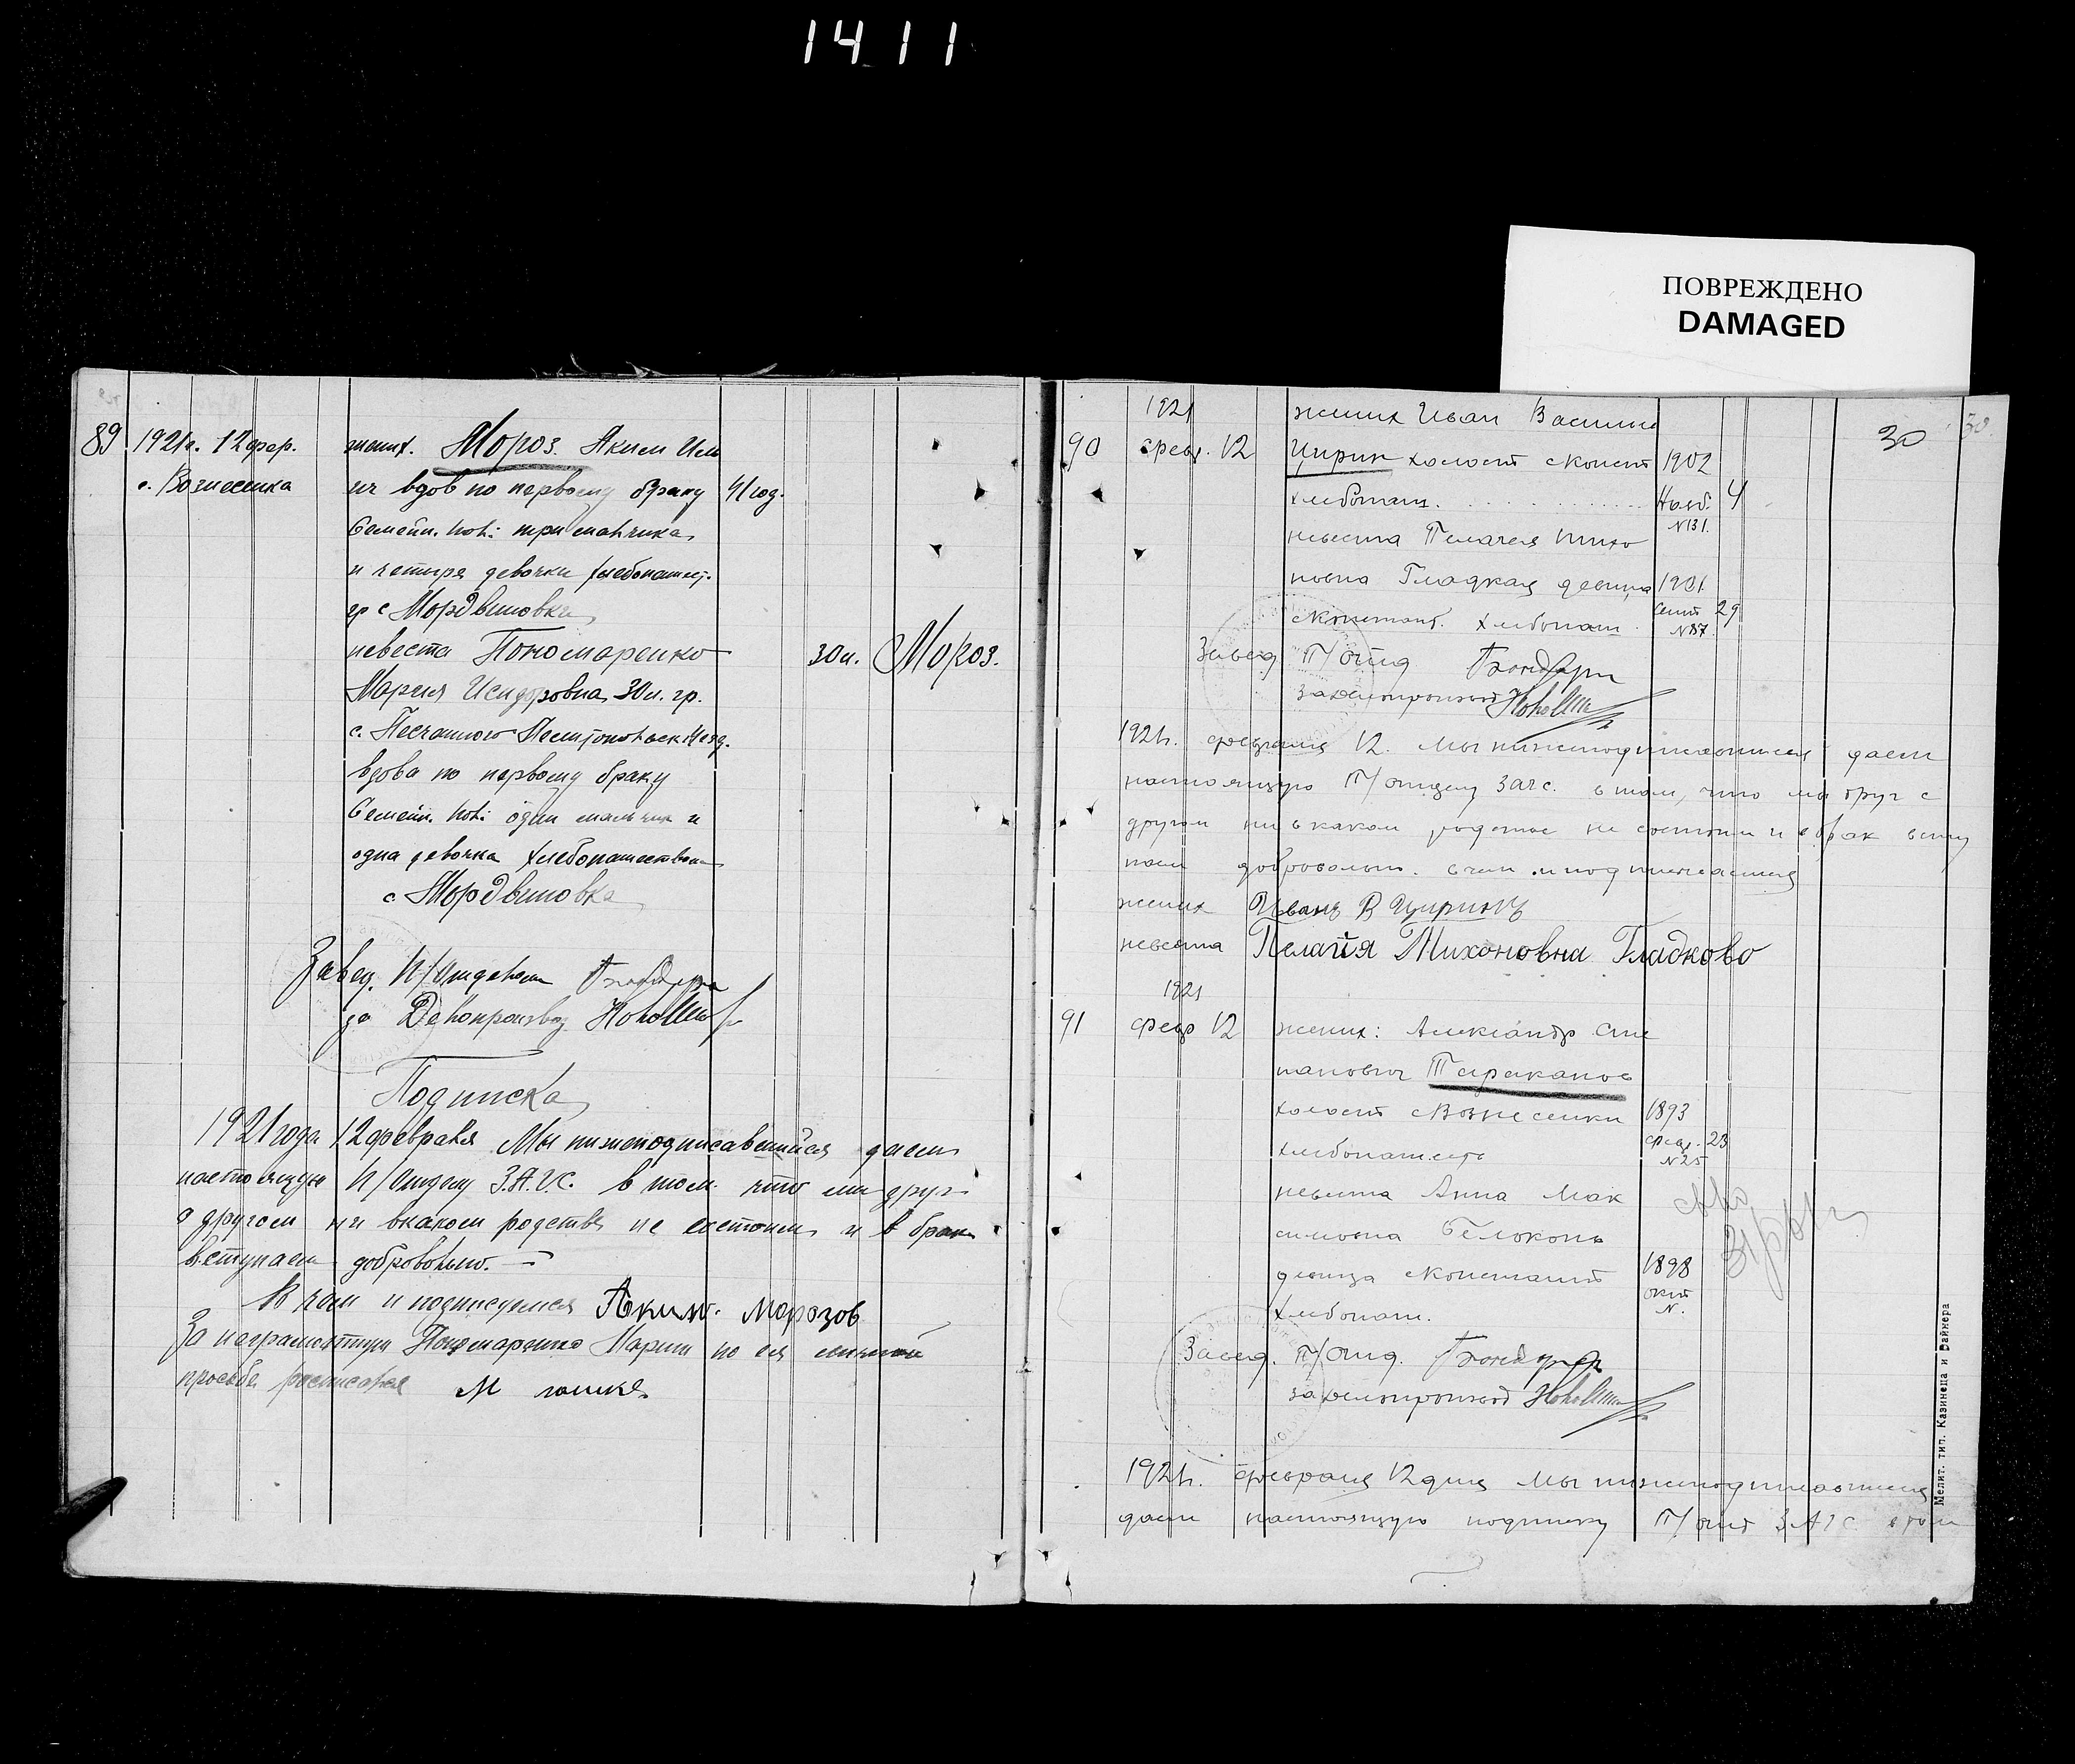 1411
ПОВРЕЖДЕНО
DAMAGED
89 1921г. 12 фер. жених. Мороз. Аким Иль
с. Вознесенка ич вдов по первому браку 41 год.
Семейн. пол: три мальчика
и четыре девочки хлебопашест.
гр с Мордвиновки
невеста Пономаренко 30 л. Мороз.
Мария Исидоровна 30 л. гр.
с. Песчаного уезд.
вдова по первому браку
Семейн. пол: один мальчик и
одна девочка хлебопашествен
с. Мордвиновка
Завед. П/Отделом Бондарь
за Делопроизвод
Подписка
1921 года 12 февраля Мы нижеподписавшийся даем
настоящую П/Отделу З.А.Г.С. в том что мы друг
с другом ни вкаком родстве не состоим и в брак
вступаем добровольно. —
В чем и подписуемся Аким. Морозов
За неграмотную Пономаренко Марию по ея личной
просьбе росписался М
30
1921 жених Иван Василье
90 февр. 12 Цирин холост с Конст 1902
хлебопаш. Нояб. 4
N131.
невеста Пелагея Тихо
новна Гладкая девица 1901
с Констант. хлебопаш. Сент 29
N87.
Завед П/отд Бондарь
за делопроизвод
1921г. февраля 12. Мы нижеподписавшиеся даем
настоящую П/отделу ЗАГС. в том, что мы друг с
другом ни в каком родстве не состоим и в брак всту
паем добровольно. в чем и подписываемся
жених Иванъ В Циринъ
невеста Пелагѣя Тихоновна Гладково
1921
91 февр 12 жених: Александр Сте
панович Тараканов
холост с Вознесенки 1893
хлебопашест февр. 23
N25
невеста Анна Мак
симовна Белоконь
девица с Констант 1898
хлебопаш. окт
N.
Завед. П/отд. Бондарь
за делопроизвод
1921г. февраля 12 дня Мы нижеподписавшиеся
даем настоящую подписку П/отд ЗАГС в том
Мелит. тип. Казинеца и Вайнера